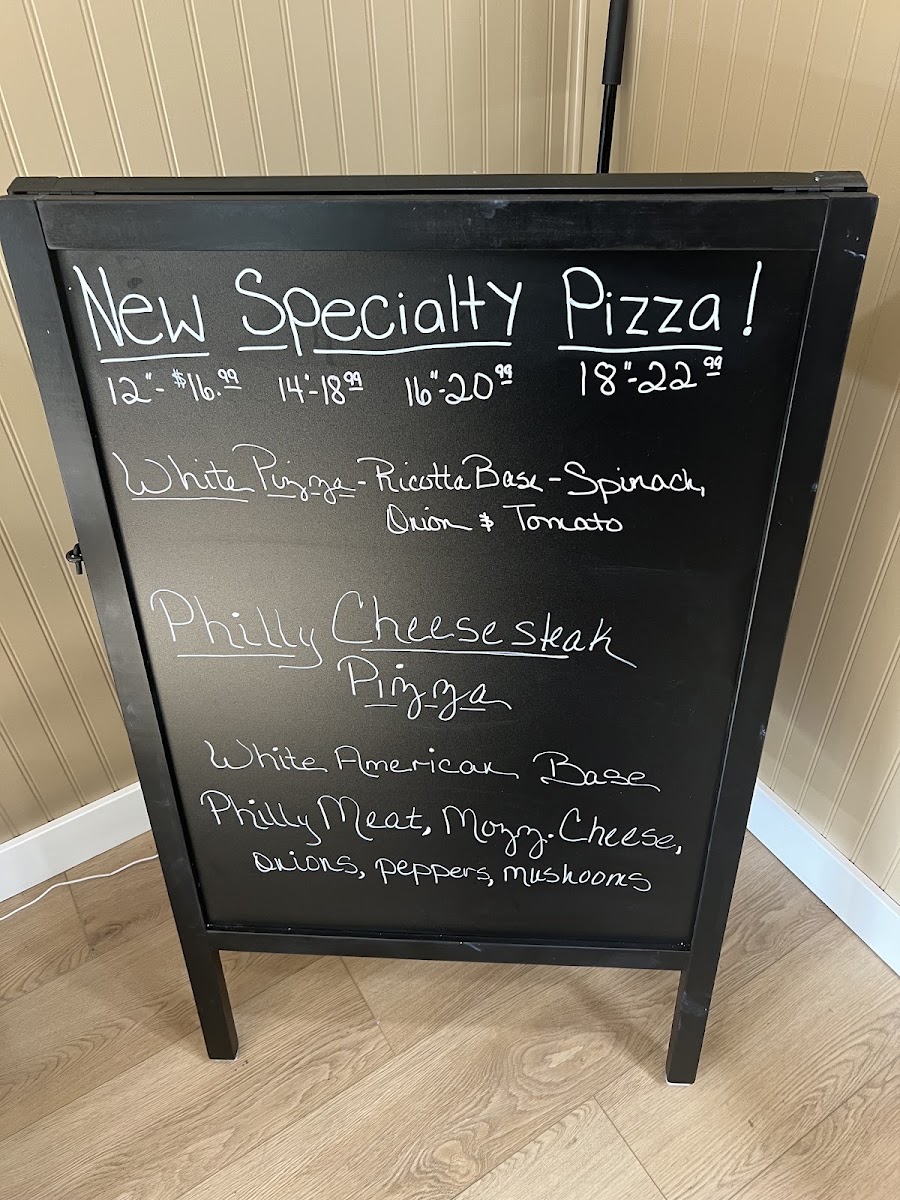 New Specialty Pizza!
12"-$16.99 14"-18.99 16"-20.99 18"-22.99
White Pizza - Ricotta Base - Spinach,
Onion & Tomato
Philly Cheesesteak
Pizza
White American Base
Philly Meat, Mozz. Cheese,
Onions, peppers, mushooms